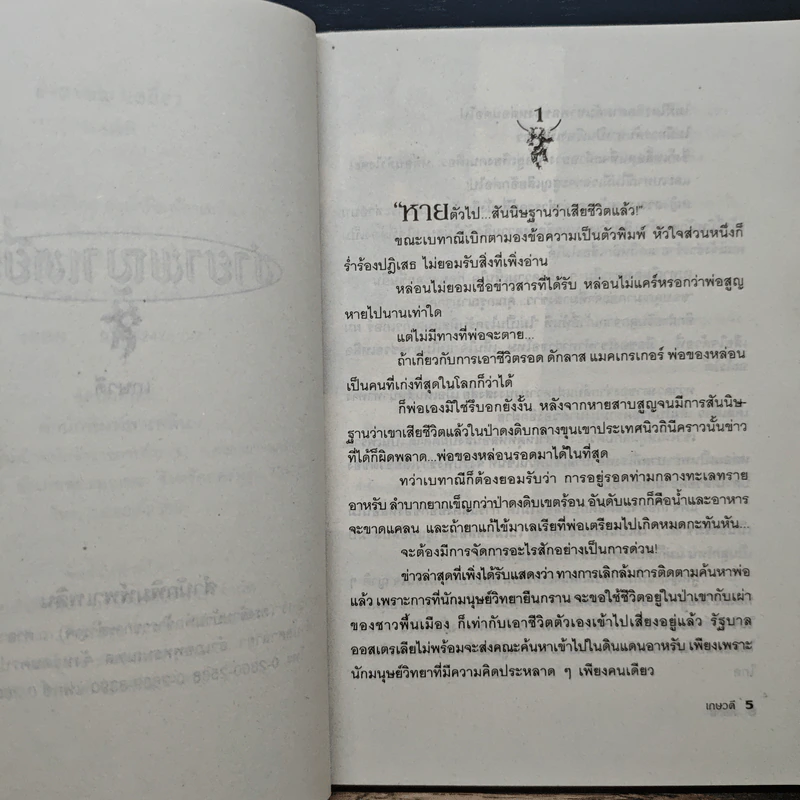 1
"หายตัวไป...สันนิษฐานว่าเสียชีวิตแล้ว!"
ขณะเบทาณีเบิกตามองข้อความเป็นตัวพิมพ์ หัวใจส่วนหนึ่งก็
ร่ำร้องปฏิเสธ ไม่ยอมรับสิ่งที่เพิ่งอ่าน
หล่อนไม่ยอมเชื่อข่าวสารที่ได้รับ หล่อนไม่แคร์หรอกว่าพ่อสูญ
หายไปนานเท่าใด
แต่ไม่มีทางที่พ่อจะตาย...
ถ้าเกี่ยวกับการเอาชีวิตรอด ดักลาส แมคเกรเกอร์ พ่อของหล่อน
เป็นคนที่เก่งที่สุดในโลกก็ว่าได้
ก็พ่อเองมิใช่รึบอกยังงั้น หลังจากหายสาบสูญจนมีการสันนิษ-
ฐานว่าเขาเสียชีวิตแล้วในป่าดงดิบกลางขุนเขาประเทศนิวกินีคราวนั้นข่าว
ที่ได้ก็ผิดพลาด...พ่อของหล่อนรอดมาได้ในที่สุด
ทว่าเบทาณีก็ต้องยอมรับว่า การอยู่รอดท่ามกลางทะเลทราย
อาหรับ ลำบากยากเข็ญกว่าป่าดงดิบเขตร้อน อันดับแรกก็คือน้ำและอาหาร
จะขาดแคลน และถ้ายาแก้ไข้มาเลเรียที่พ่อเตรียมไปเกิดหมดกะทันหัน...
จะต้องมีการจัดการอะไรสักอย่างเป็นการด่วน!
ข่าวล่าสุดที่เพิ่งได้รับแสดงว่า ทางการเลิกล้มการติดตามค้นหาพ่อ
แล้ว เพราะการที่นักมนุษย์วิทยายืนกราน จะขอใช้ชีวิตอยู่ในป่าเขากับเผ่า
ของชาวพื้นเมือง ก็เท่ากับเอาชีวิตตัวเองเข้าไปเสี่ยงอยู่แล้ว รัฐบาล
ออสเตรเลียไม่พร้อมจะส่งคณะค้นหาเข้าไปในดินแดนอาหรับ เพียงเพราะ
นักมนุษย์วิทยาที่มีความคิดประหลาด ๆ เพียงคนเดียว
เกษวดี 5